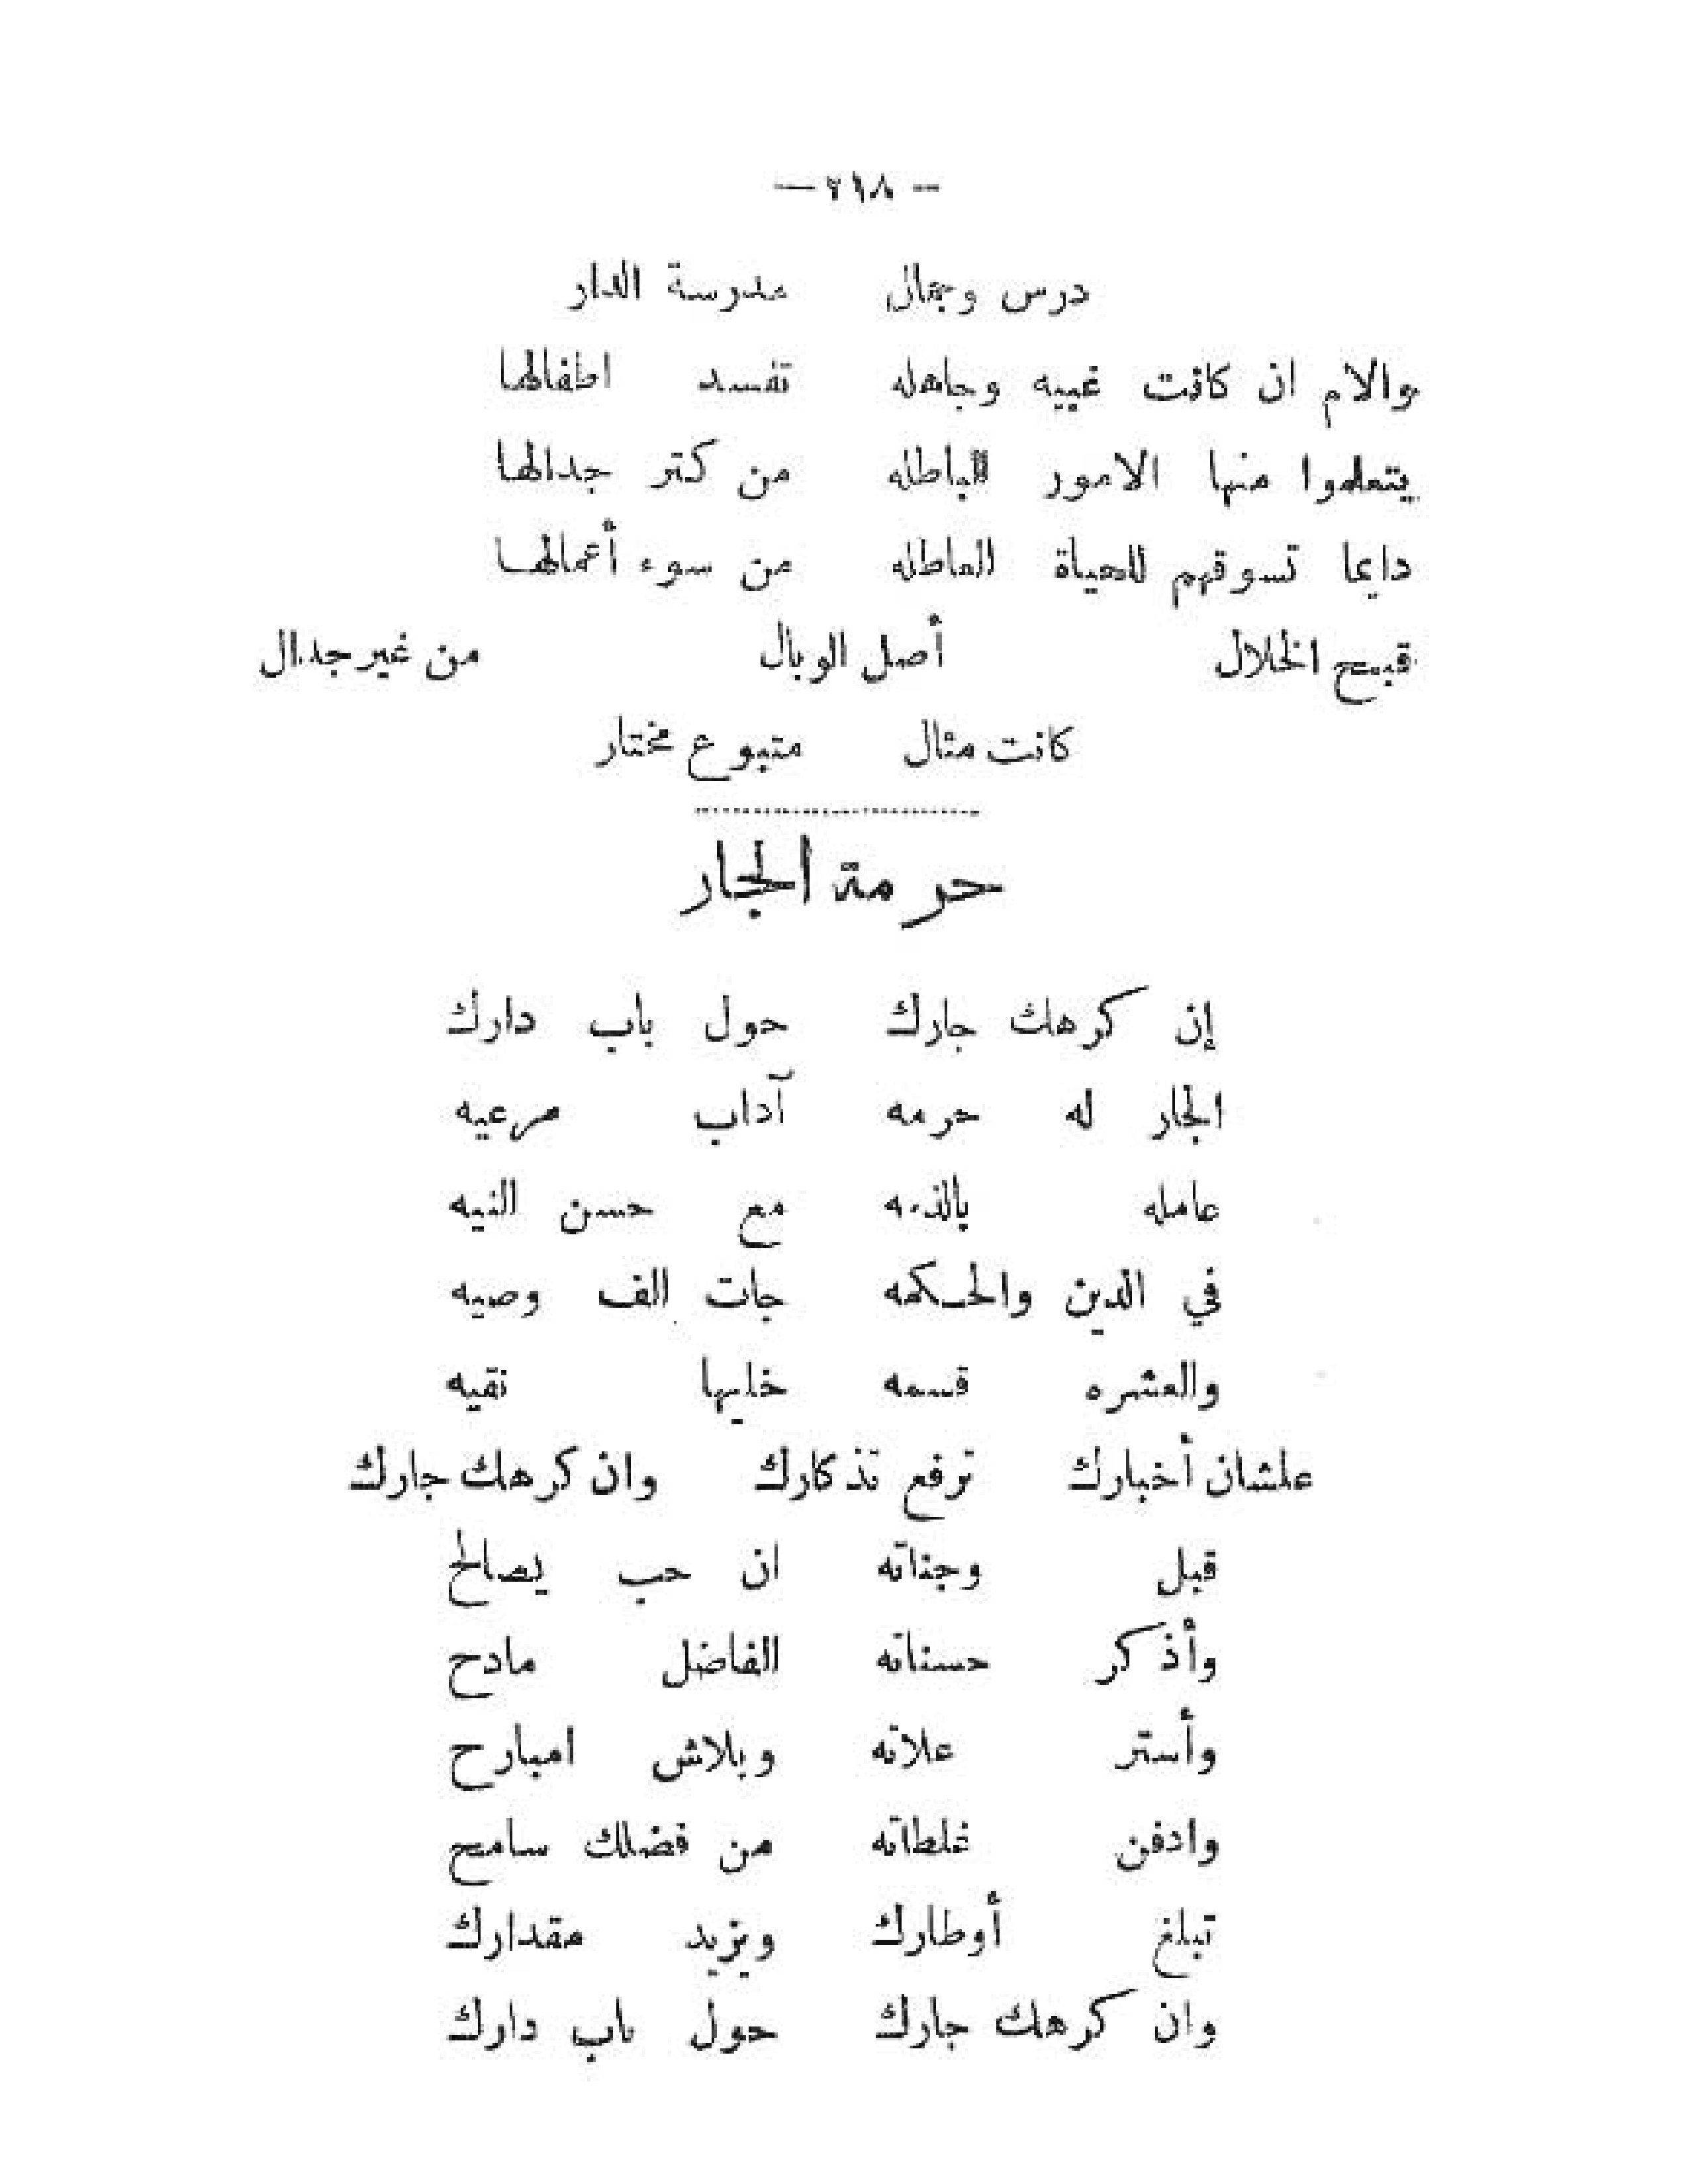 — ٢١٨ —
درس وجمال مدرسة الدار
والام ان كانت غبيه وجاهله تفسد اطفالها
يتعلموا منها الامور الباطله من كتر جدالها
دايما تسوقهم للحياة العاطله من سوء أعمالها
قبيح الخلال أصل الوبال من غير جدال
كانت مثال متبوع مختار
حرمة الجار
إن كرهك جارك حول باب دارك
الجار له حرمه آداب مرعيه
عامله بالذمه مع حسن النيه
في الدين والحكمه جات الف وصيه
والعشره قسمه خليها نقيه
علشان أخبارك ترفع تذكارك وان كرهك جارك
قبل وجناته ان حب يصالح
وأذكر حسناته الفاضل مادح
وأستر علاته وبلاش امبارح
وادفن غلطاته من فضلك سامح
تبلغ أوطارك ويزيد مقدارك
وان كرهك جارك حول باب دارك